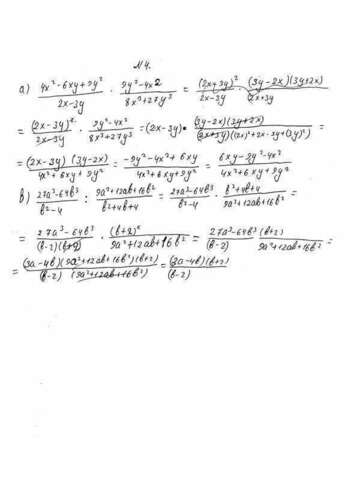 №4.
а) (4x²-6xy+9y²)/(2x-3y) · (9y²-4x2)/(8x³+27y³) = (2x+3y)²/(2x-3y) · (3y-2x)(3y+2x)/(2x+3y)
= (2x-3y)²/(2x-3y) · (9y²-4x²)/(8x³+27y³) = (2x-3y) · (3y-2x)(3y+2x)/((2x+3y)((2x)²+2x·3y+(3y)²)) =
= (2x-3y)(3y-2x)/(4x²+6xy+9y²) = (-9y²-4x²+6xy)/(4x²+6xy+9y²) = (6xy-9y²-4x²)/(4x²+6xy+9y²)
в) (27a³-64в³)/(в²-4) : (9a²+12aв+16в²)/(в²+4в+4) = (27a³-64в³)/(в²-4) · (в²+4в+4)/(9a²+12aв+16в²)
= (27a³-64в³)/((в-2)(в+2)) · (в+2)²/(9a²+12aв+16в²) = (27a³-64в³(в+2))/((в-2) 9a²+12aв+16в²) =
= (3a-4в)(9a²+12aв+16в²)(в+2)/((в-2)(9a²+12aв+16в²)) = (3a-4в)(в+2)/(в-2)